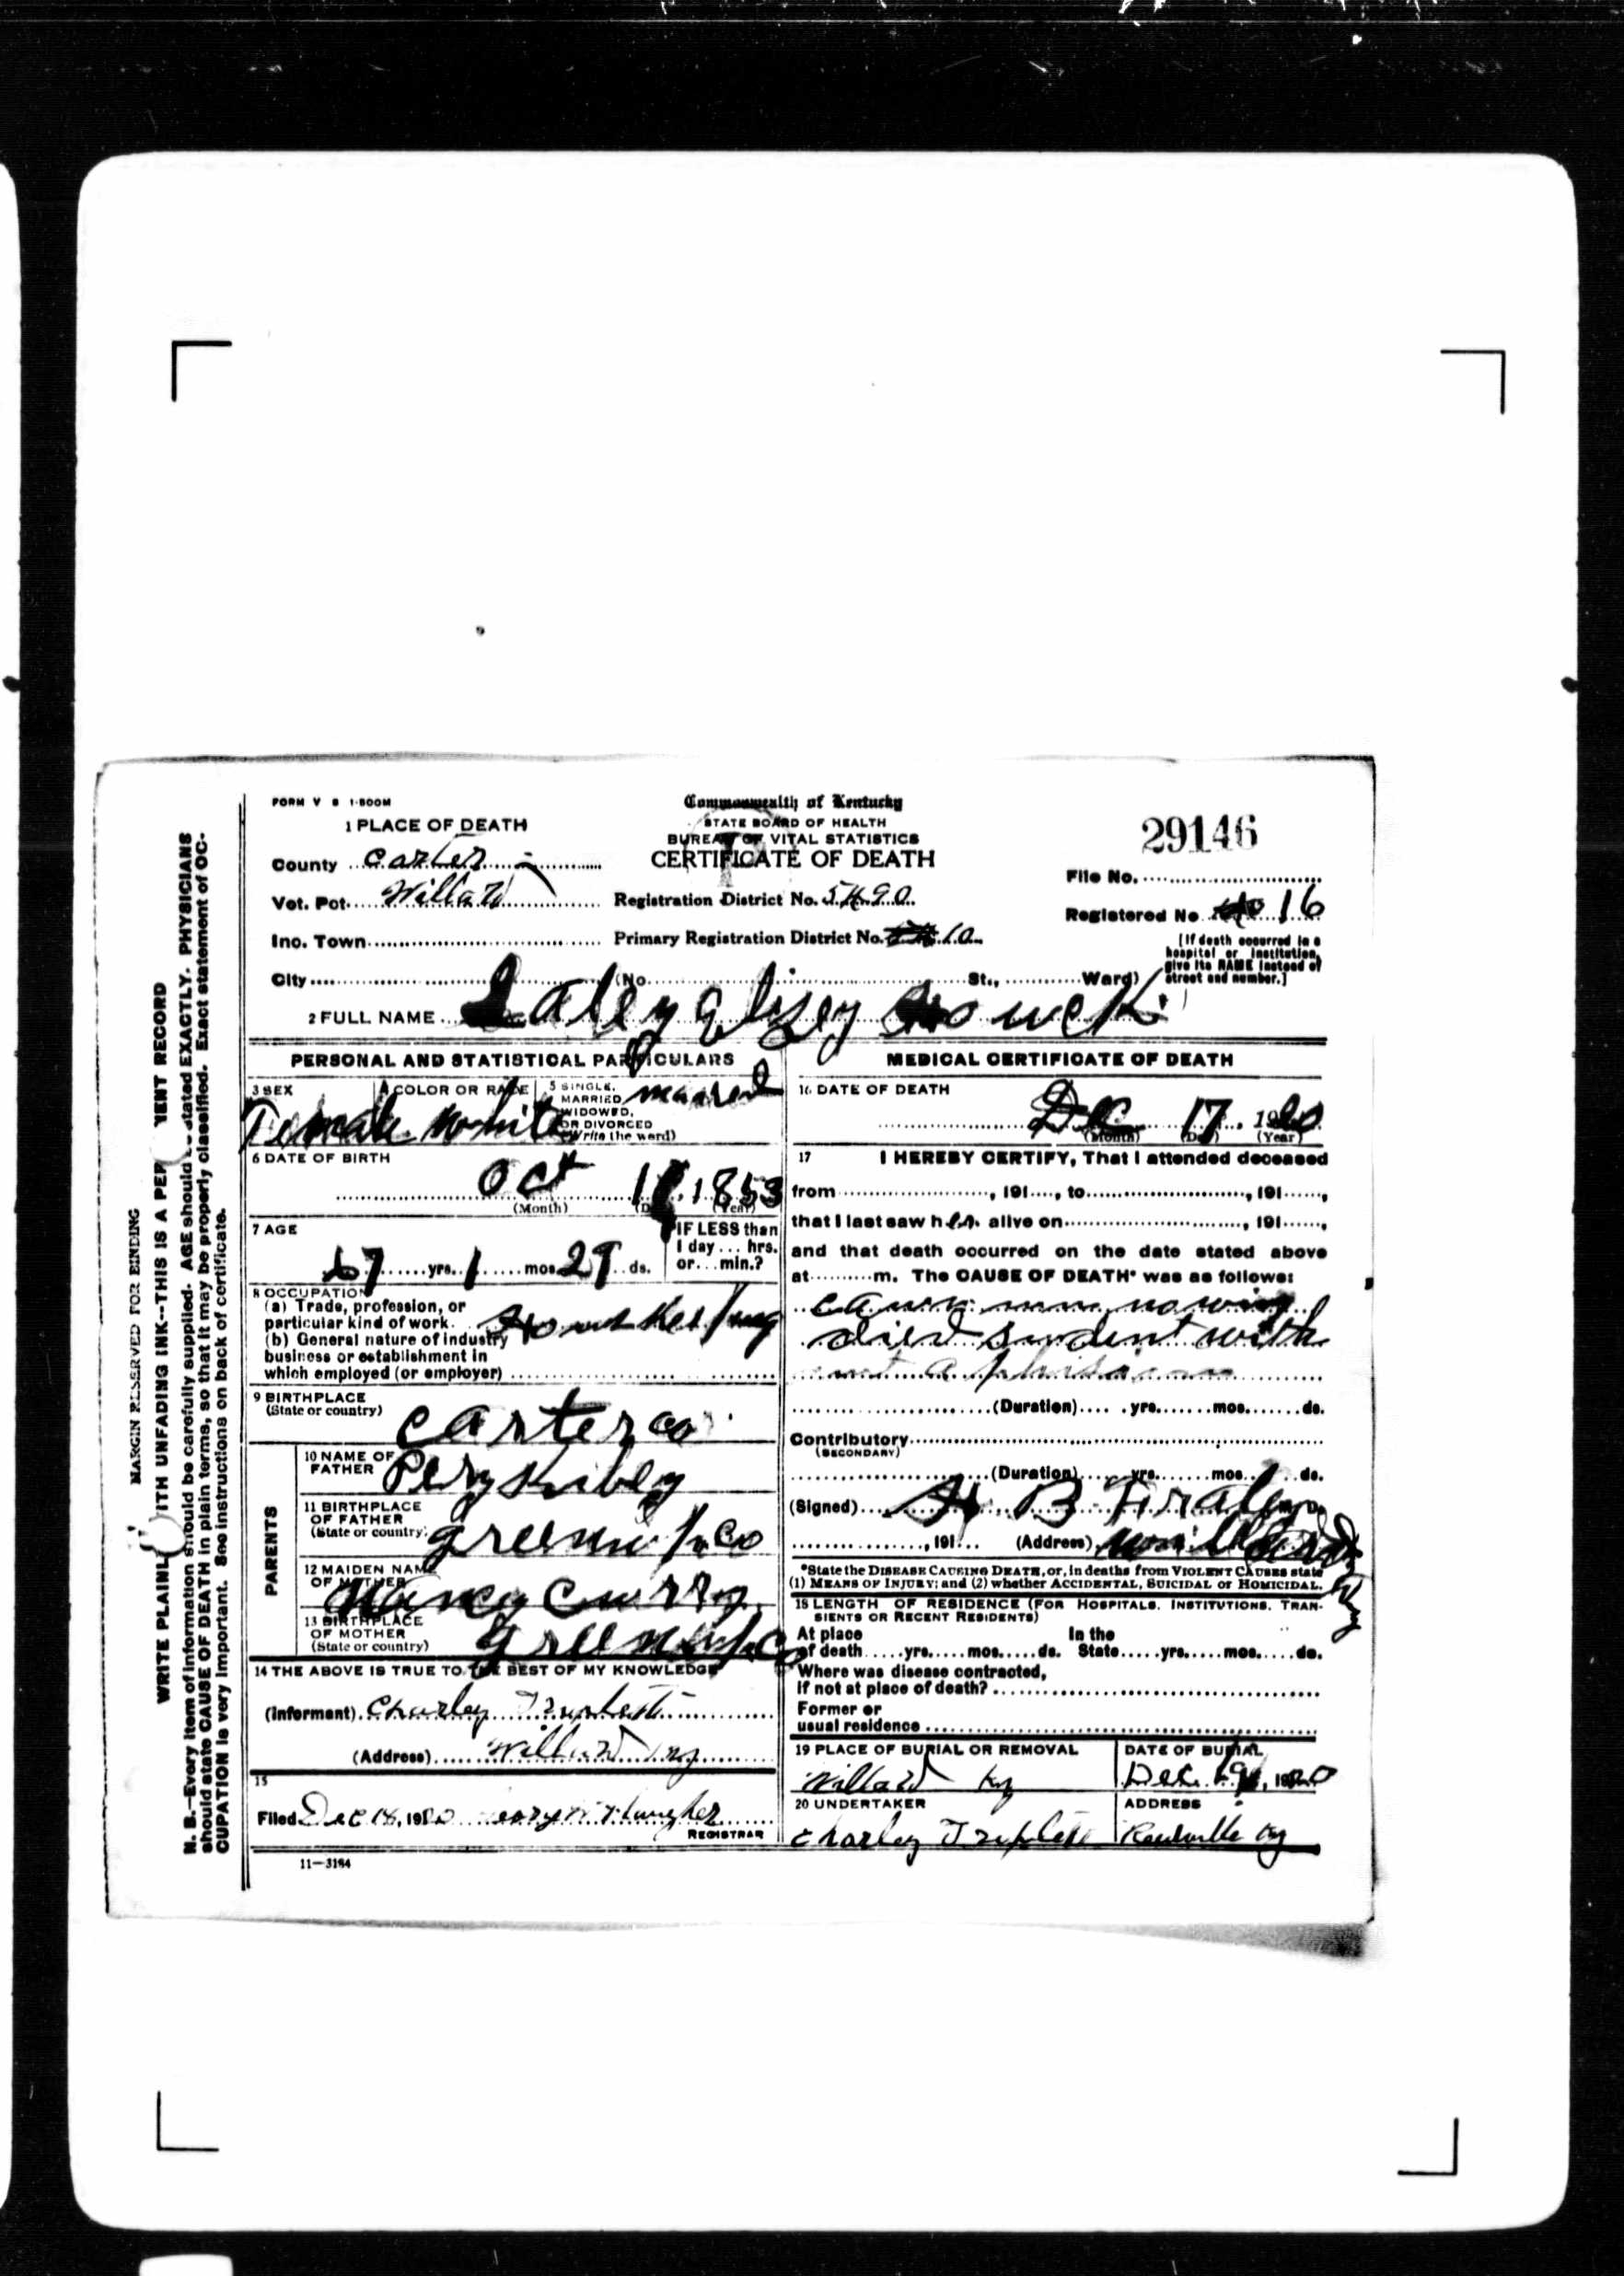 FORM V S 1-500M
Commonwealth of Kentucky
STATE BOARD OF HEALTH
BUREAU OF VITAL STATISTICS
CERTIFICATE OF DEATH
29146
File No.
Registered No. 16
[If death occurred in a hospital or institution, give its NAME instead of street and number.]
1 PLACE OF DEATH
County Carter
Vot. Pct. Willard
Registration District No. 5490
Inc. Town
Primary Registration District No. 10
City (No. St., Ward)
2 FULL NAME
PERSONAL AND STATISTICAL PARTICULARS
3 SEX Female
4 COLOR OR RACE White
5 SINGLE, MARRIED, WIDOWED, OR DIVORCED (Write the word) married
6 DATE OF BIRTH
Oct 1853
(Month) (Day) (Year)
7 AGE
67 yrs. 1 mos. 29 ds.
IF LESS than 1 day ... hrs. or ... min.?
8 OCCUPATION
(a) Trade, profession, or particular kind of work
(b) General nature of industry business or establishment in which employed (or employer)
9 BIRTHPLACE
(State or country)
Carter Co
PARENTS
10 NAME OF FATHER Pery
11 BIRTHPLACE OF FATHER (State or country) Greenup Co
12 MAIDEN NAME OF MOTHER Nancy Curry
13 BIRTHPLACE OF MOTHER (State or country) Greenup Co
14 THE ABOVE IS TRUE TO THE BEST OF MY KNOWLEDGE
(Informant) Charley Triplett
(Address) Willard Ky
15
Filed Dec 18, 1920
REGISTRAR
11—3184
MEDICAL CERTIFICATE OF DEATH
16 DATE OF DEATH
Dec 17, 1920
(Month) (Day) (Year)
17 I HEREBY CERTIFY, That I attended deceased
from , 191 , to , 191 ,
that I last saw her alive on , 191 ,
and that death occurred on the date stated above
at m. The CAUSE OF DEATH* was as follows:
died sudent with
out a phisician
(Duration) yrs. mos. ds.
Contributory
(SECONDARY)
(Duration) yrs. mos. ds.
(Signed) H B Fraley M. D.
, 191 (Address) Willard Ky
*State the DISEASE CAUSING DEATH, or, in deaths from VIOLENT CAUSES state
(1) MEANS OF INJURY; and (2) whether ACCIDENTAL, SUICIDAL or HOMICIDAL.
18 LENGTH OF RESIDENCE (FOR HOSPITALS, INSTITUTIONS, TRANSIENTS OR RECENT RESIDENTS)
At place of death yrs. mos. ds. In the State yrs. mos. ds.
Where was disease contracted,
If not at place of death?
Former or
usual residence
19 PLACE OF BURIAL OR REMOVAL
Willard Ky
DATE OF BURIAL
Dec. 19, 1920
20 UNDERTAKER
Charley Triplett
ADDRESS
Ky
MARGIN RESERVED FOR BINDING
WRITE PLAINLY WITH UNFADING INK--THIS IS A PERMANENT RECORD
N. B.—Every item of information should be carefully supplied. AGE should be stated EXACTLY. PHYSICIANS
should state CAUSE OF DEATH in plain terms, so that it may be properly classified. Exact statement of OC-
CUPATION is very important. See instructions on back of certificate.